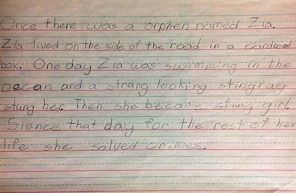 Once there was a orphen named Zia.
Zia lived on the side of the road in a cardboard
box. One day Zia was swimming in the
oacan and a strang looking stingray
stung her. Then she became sting girl.
Sience that day for the rest of her
life she solved crimes.